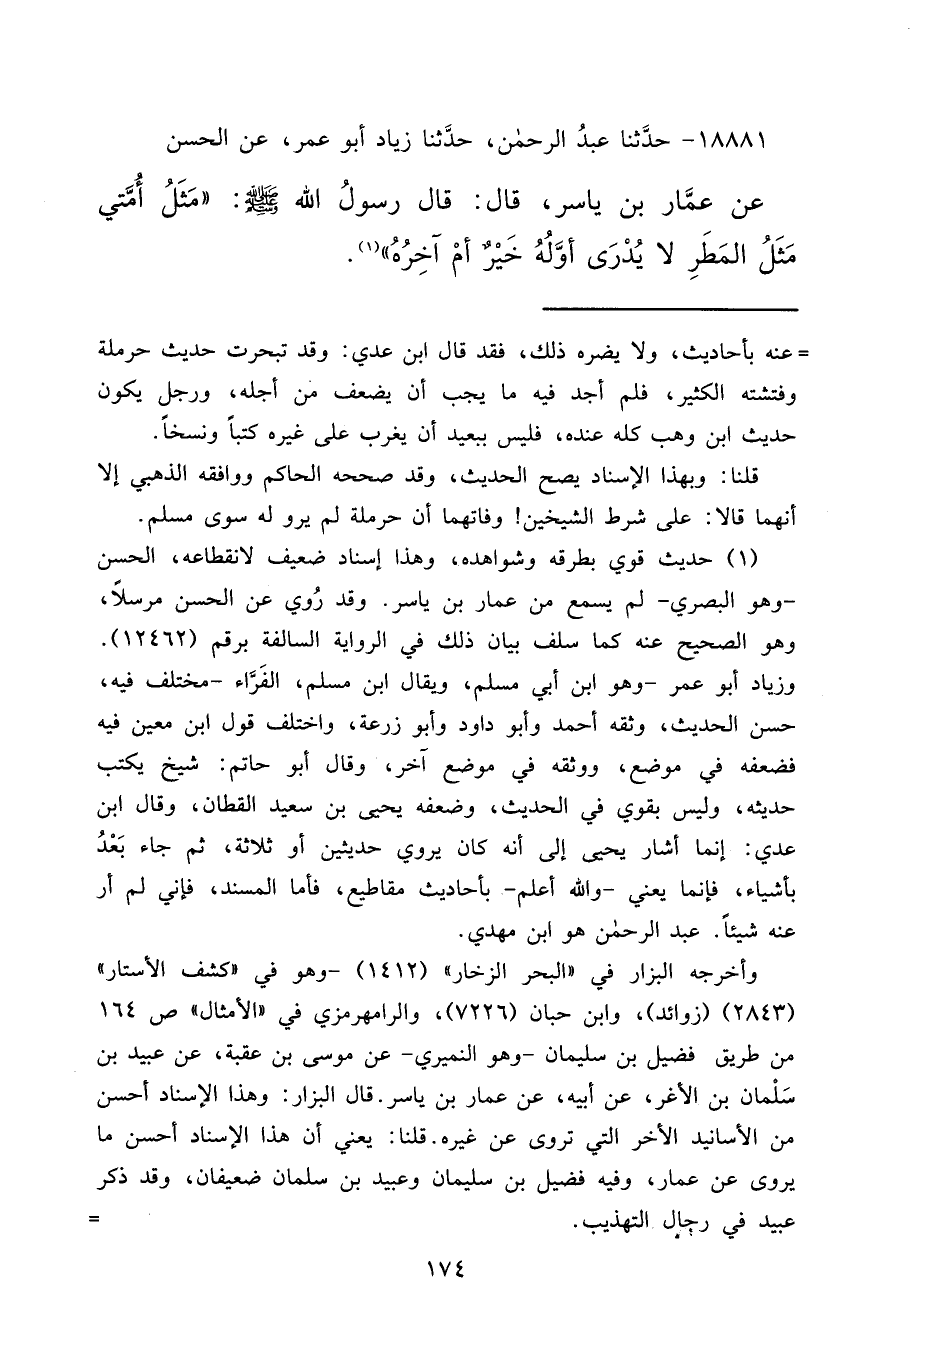 ١٨٨٨١- حدَّثنا عبدُ الرحمٰن، حدَّثنا زياد أبو عمر، عن الحسن
عن عمَّار بن ياسر، قال: قال رسولُ الله ﷺ: «مَثَلُ أُمَّتي
مَثَلُ المَطَرِ لا يُدْرَى أوَّلُهُ خَيْرٌ أمْ آخِرُهُ»(١).
= عنه بأحاديث، ولا يضره ذلك، فقد قال ابن عدي: وقد تبحرت حديث حرملة
وفتشته الكثير، فلم أجد فيه ما يجب أن يضعف من أجله، ورجل يكون
حديث ابن وهب كله عنده، فليس ببعيد أن يغرب على غيره كتباً ونسخاً.
قلنا: وبهذا الإسناد يصح الحديث، وقد صححه الحاكم ووافقه الذهبي إلا
أنهما قالا: على شرط الشيخين! وفاتهما أن حرملة لم يرو له سوى مسلم.
(١) حديث قوي بطرقه وشواهده، وهذا إسناد ضعيف لانقطاعه، الحسن
-وهو البصري- لم يسمع من عمار بن ياسر. وقد رُوي عن الحسن مرسلاً،
وهو الصحيح عنه كما سلف بيان ذلك في الرواية السالفة برقم (١٢٤٦٢).
وزياد أبو عمر -وهو ابن أبي مسلم، ويقال ابن مسلم، الفَرَّاء -مختلف فيه،
حسن الحديث، وثقه أحمد وأبو داود وأبو زرعة، واختلف قول ابن معين فيه
فضعفه في موضع، ووثقه في موضع آخر، وقال أبو حاتم: شيخ يكتب
حديثه، وليس بقوي في الحديث، وضعفه يحيى بن سعيد القطان، وقال ابن
عدي: إنما أشار يحيى إلى أنه كان يروي حديثين أو ثلاثة، ثم جاء بَعْدُ
بأشياء، فإنما يعني -والله أعلم- بأحاديث مقاطيع، فأما المسند، فإني لم أر
عنه شيئاً. عبد الرحمٰن هو ابن مهدي.
وأخرجه البزار في «البحر الزخار» (١٤١٢) -وهو في «كشف الأستار»
(٢٨٤٣) (زوائد)، وابن حبان (٧٢٢٦)، والرامهرمزي في «الأمثال» ص ١٦٤
من طريق فضيل بن سليمان -وهو النميري- عن موسى بن عقبة، عن عبيد بن
سَلْمان بن الأغر، عن أبيه، عن عمار بن ياسر. قال البزار: وهذا الإسناد أحسن
من الأسانيد الأخر التي تروى عن غيره. قلنا: يعني أن هذا الإسناد أحسن ما
يروى عن عمار، وفيه فضيل بن سليمان وعبيد بن سلمان ضعيفان، وقد ذكر
عبيد في رجال التهذيب. =
١٧٤